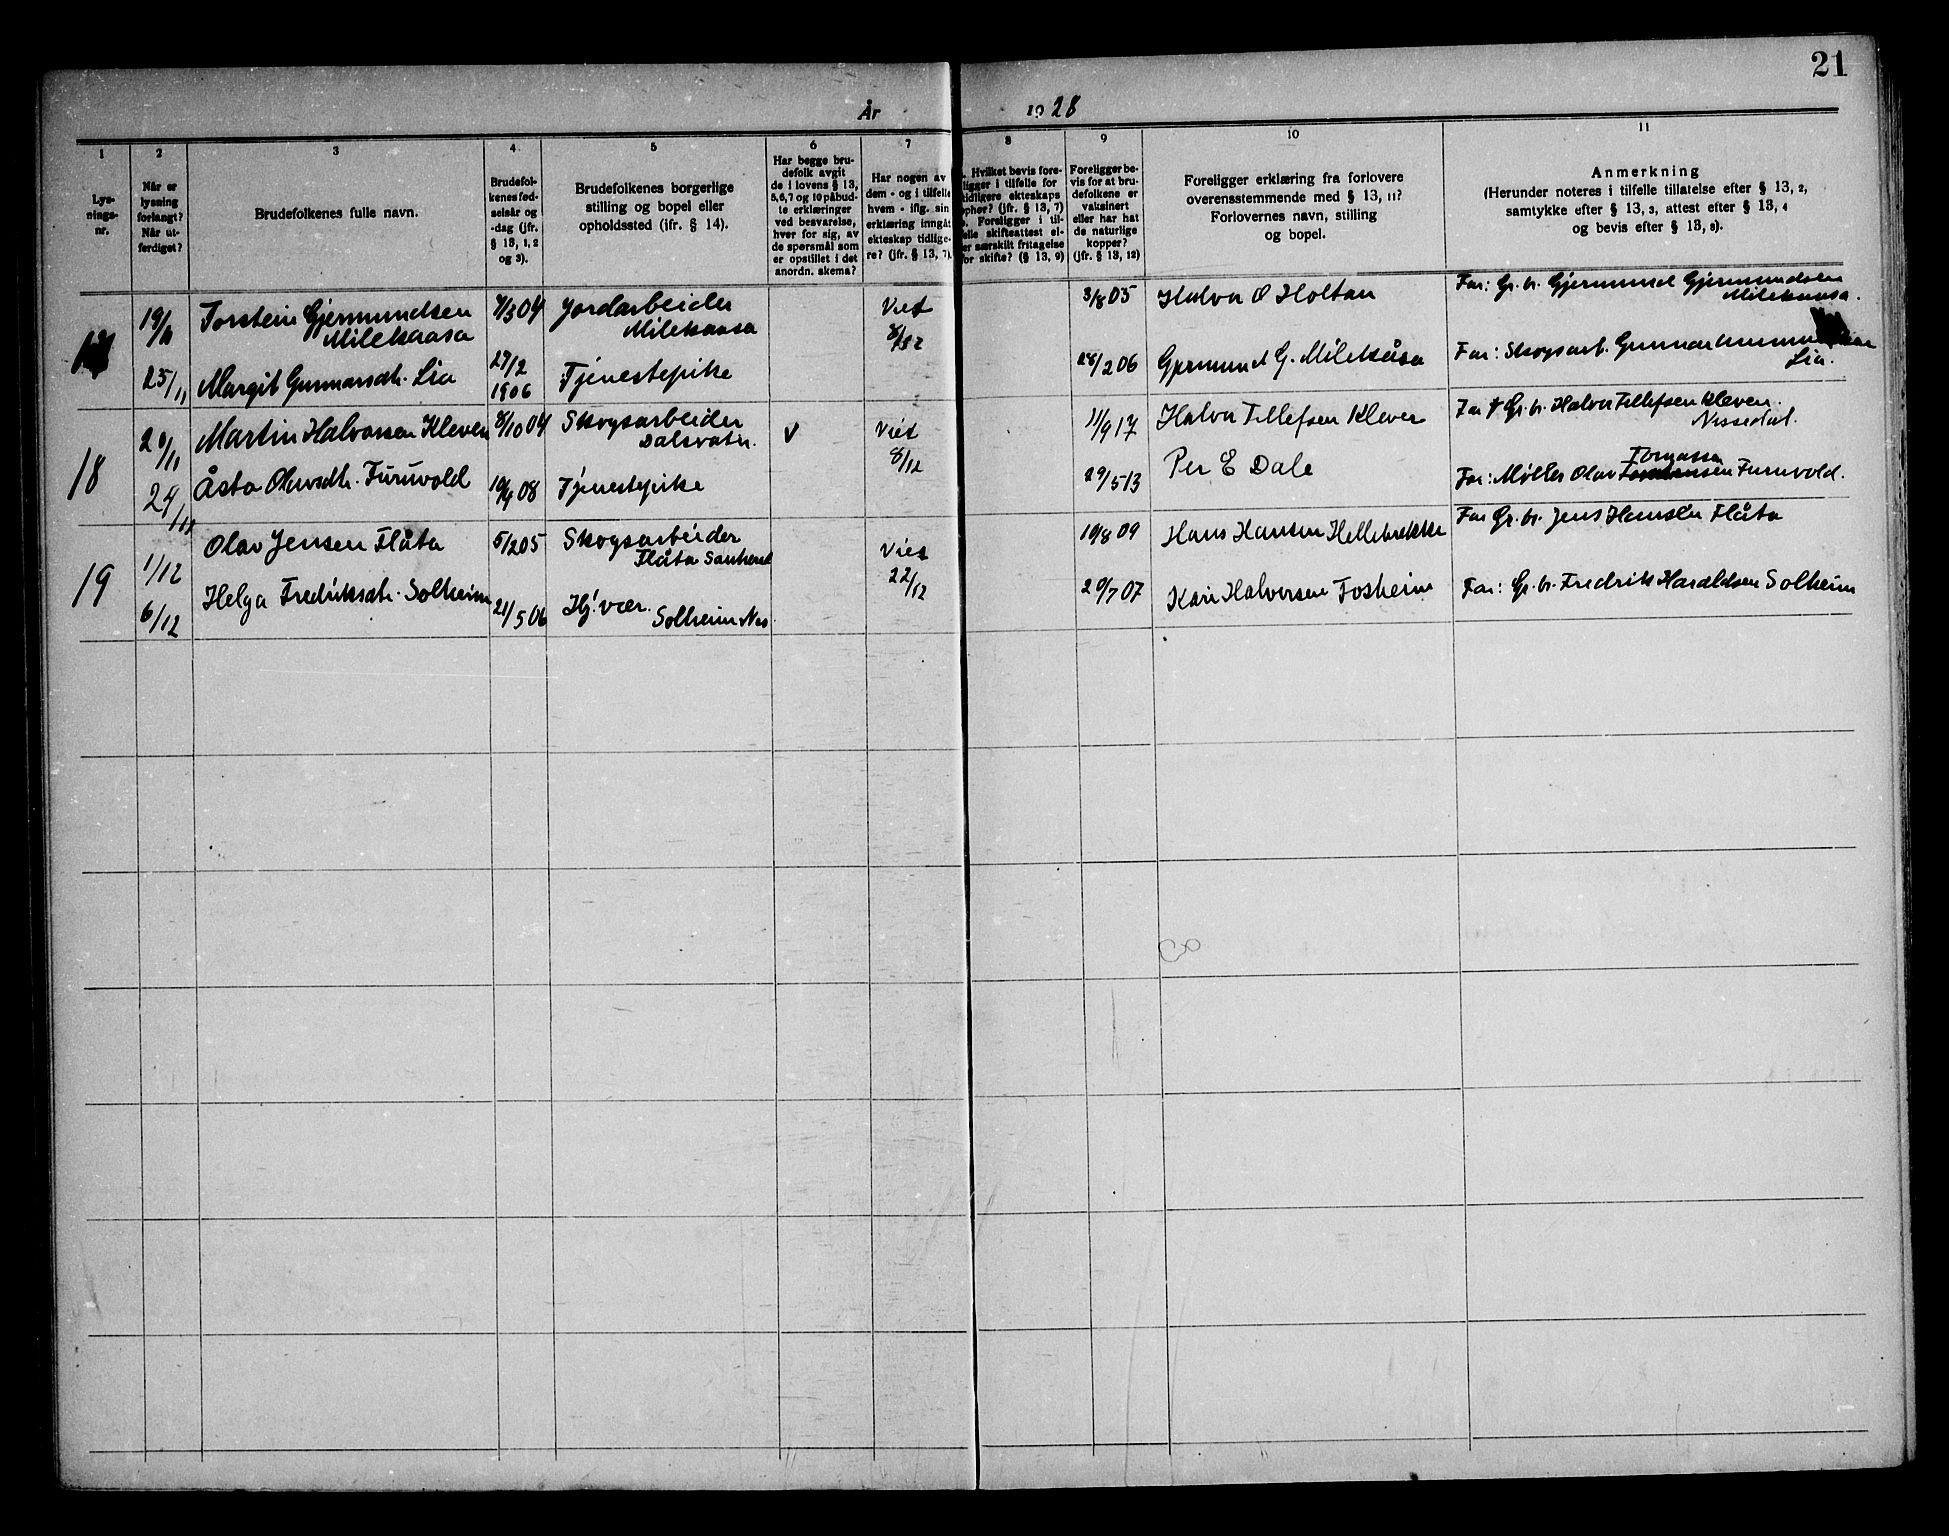 21
År 1928
1 2 3 4 5 6 7 8 9 10 11
Lys-
nings-
nr.
Når er
lysning
forlangt?
Når ut-
ferdiget?
Brudefolkenes fulle navn.
Brudefol-
kenes fød-
selsår og
-dag (jfr.
§ 13, 1, 2
og 3).
Brudefolkenes borgerlige
stilling og bopel eller
opholdssted (ifr. § 14).
Har begge bru-
defolk avgit
de i lovens § 13,
5, 6, 7 og 10 påbud-
te erklæringer
ved besvarelse,
hver for sig, av
de spørsmål som
er opstillet i det
anordn. skema?
Har nogen av
dem - og i tilfelle
hvem - iflg. sin
erklæring inngåt
ekteskap tidlige-
re? (jfr. § 13, 7)
Hvilket bevis fore-
ligger i tilfelle for
tidligere ekteskaps
ophør? (jfr. § 13, 7)
Foreligger i til-
felle skifteattest el-
er særskilt fritagelse
for skifte? (§ 13, 9)
Foreligger be-
vis for at bru-
defolkene er
vaksinert
eller har hat
de naturlige
kopper?
(jfr. § 13, 12)
Foreligger erklæring fra forlovere
overensstemmende med § 13, 11?
Forlovernes navn, stilling
og bopel.
Anmerkning
(Herunder noteres i tilfelle tillatelse efter § 13, 2,
samtykke efter § 13, 3, attest efter § 13, 4
og bevis efter § 13, 8).
19/11 Torstein Gjermundsen 7/3 04 Jordarbeider Viet 3/8 05 Halvor O Holtan Far: Gr. br. Gjermund Gjermundsen
Milekaasa Milekaasa 8/12 Milekaasa.
25/11 Margit Gunnarsdtr. Lia 27/2 1906 Tjenestepike 28/2 06 Gjermund G. Milekåsa Far: Skogsarb. Gunnar
Lia.
18 20/11 Martin Halvorsen Kleven 8/10 04 Skogsarbeider V Viet 11/9 17 Halvor Tellefsen Kleven Far † Gr. br. Halvor Tellefsen Kleven.
Dalsvatn. 8/12 Nissedal.
24/11 Åsta Olavsdtr. Furuvold 08 Tjenestepike 29/5 13 Per E Dale Far: Møller Olav Furuvold.
19 1/12 Olav Jensen Flåta 5/2 05 Skogsarbeider Viet 10/8 09 Hans Hansen Hellebrekke Far Gr. br. Jens Hansen Flåta
Flåta 22/12
6/12 Helga Fredriksdtr. Solheim 21/5 06 Hj. vær. 20/7 07 Kari Halvorsen Fosheim Far: Gr. br. Fredrik Haraldsen Solheim
Solheim Nes